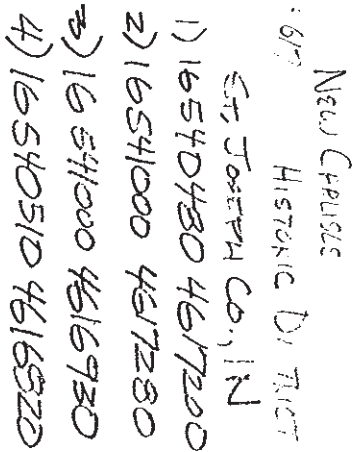 NEW CARLISLE
HISTORIC DISTRICT
St. Joseph Co., IN
1) 16 540480 4617200
2) 16 541000 4617280
3) 16 541000 4616930
4) 16 540510 4616820